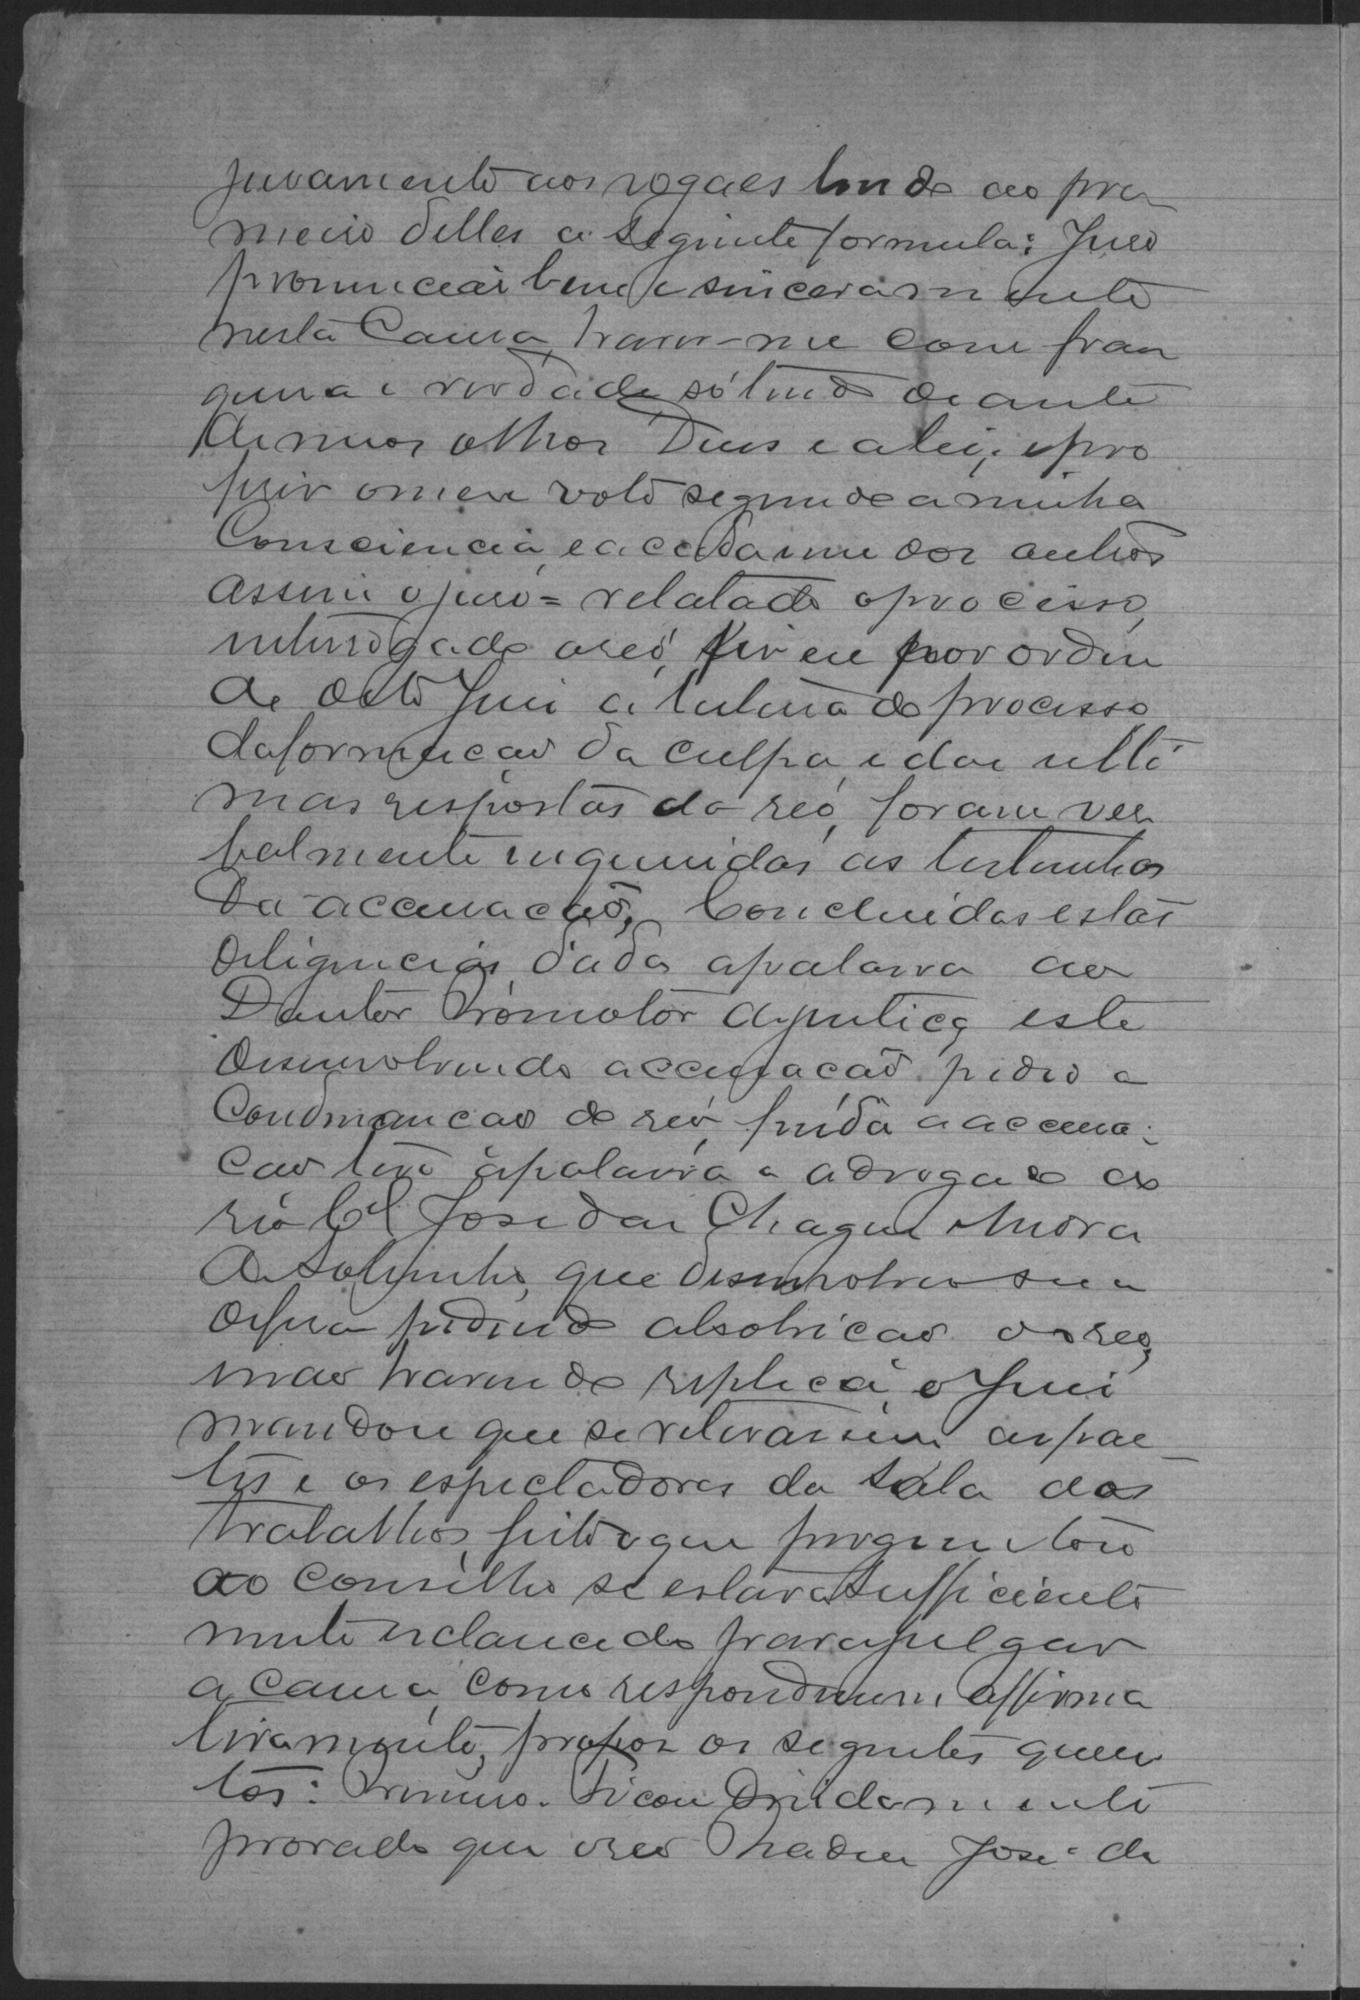 juramento aos vogaes lendo ao pri
meiro delles a seguinte formula: Juro
pronunciar bem e sinceramente
nesta Causa, haver-me com fran
quesa e verdade só tendo deante
de meos olhos Deus e a lei; e pro
ferir o meu voto segundo a minha
Consciencia, e a cada um dos outros
assim o juro = relatado o processo,
interrogado o reó, fis eu por ordem
de dito Juis a leitura do processo
da formação da culpa, e das ulti
mas respostas do reó, foram ver
balmente inqueridas as testemunhas
da accusação, Concluidas estas
deligencias, dada a palavra ao
Doutor Promotor de justiça, este
desenvolvendo accusação pedio a
Condemnação do reó, finda a accusa-
ção teve a palavra o advogado do
réo Cel José das Chagas Andra
de Sobrinho, que desenvolveu sua
defesa pedindo absolvição do reo,
não havendo replica, o Juis
mandou que se retirassem as par
tes e os espectadores da sala dos
trabalhos, feito o que perguntou
ao conselho se estava sufficiente
mente esclarecido para julgar
a causa, como respondessem affirma
tivamente, propos os seguintes quesi
tos: Primeiro. Ficou devidamente
provado que o reo Thadeu José de